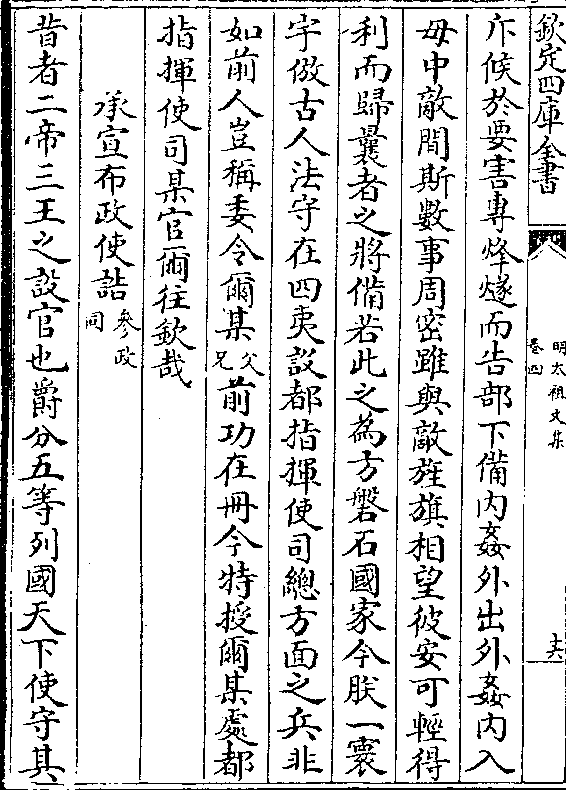 欽定四庫全書
明太祖文集
卷四
十六
斥候於要害專烽燧而告部下備内姦外出外姦内入
毋中敵間斯數事周密雖與敵旌旗相望彼安可輕得
利而歸曩者之將備若此之為方磐石國家今朕一寰
宇倣古人法守在四夷設都指揮使司總方面之兵非
如前人豈稱委令爾某父兄前功在冊今特授爾某處都
指揮使司某官爾往欽哉
承宣布政使誥參政同
昔者二帝三王之設官也爵分五等列國天下使守其